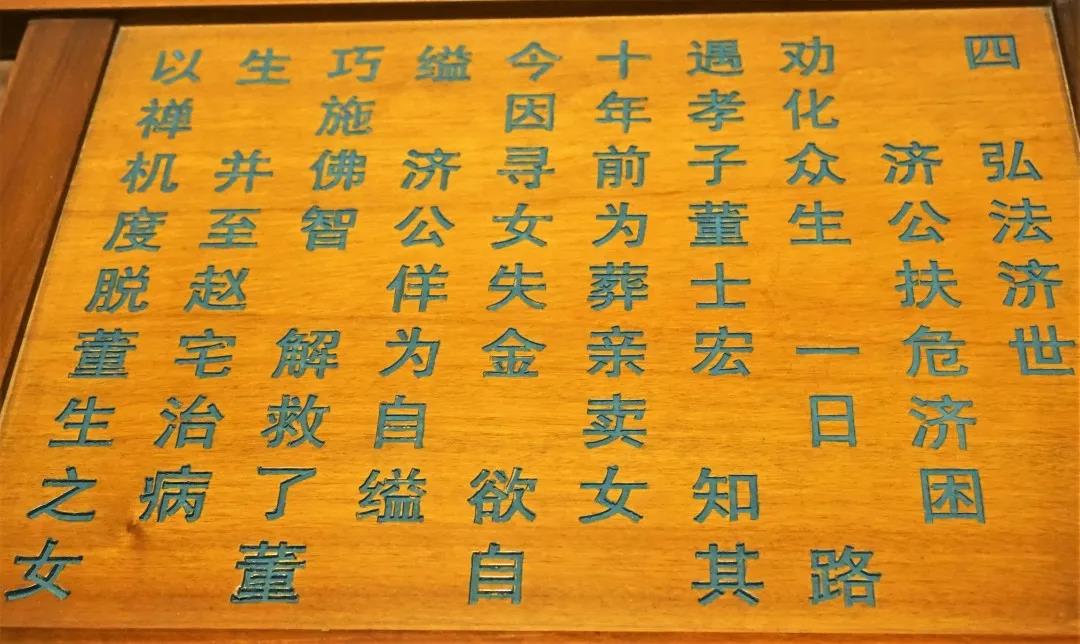 四 弘法济世
济公扶危济困
劝化众生 一日 路
遇孝子董士宏 知其
十年前为葬亲卖女
今因寻女失金 欲自
缢 济公佯为自缢
巧施佛智 解救了董
生 并至赵宅治病
以禅机度脱董生之女